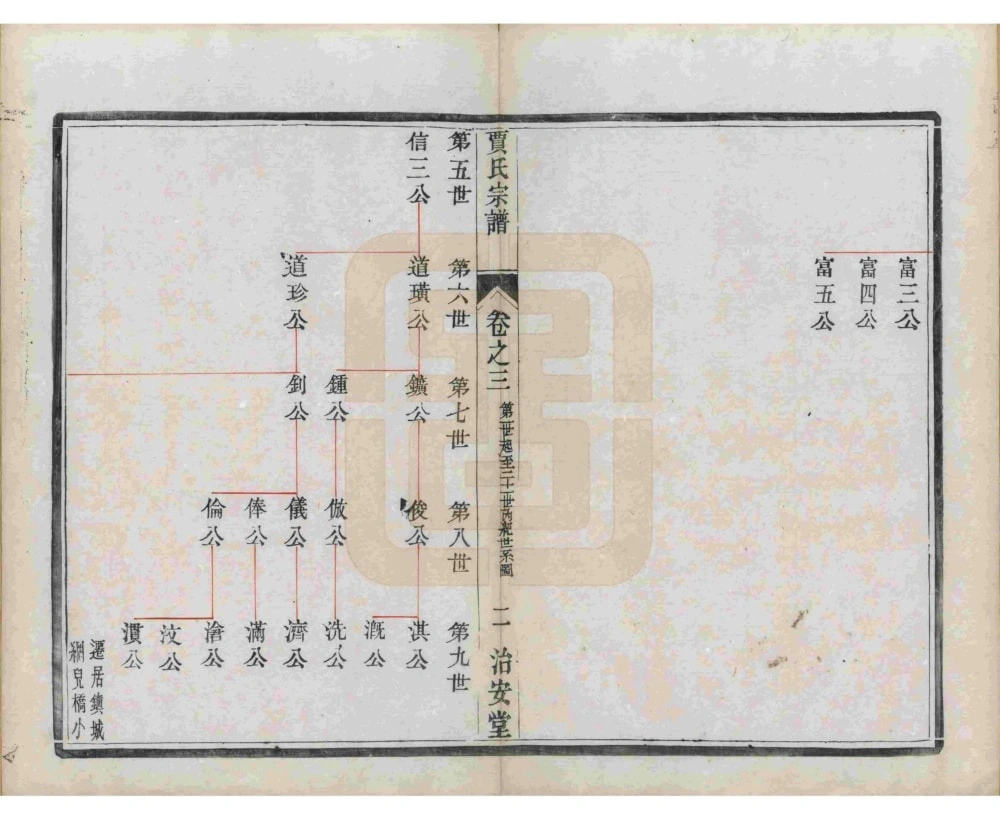 富三公
富四公
富五公
賈氏宗譜
卷之三
二
治安堂
第五世
第六世
第七世
第八世
第九世
信三公
道璜公
鑛公
俊公
淇公
溉公
鍾公
倣公
洗公
道珍公
釗公
儀公
濟公
俸公
滿公
倫公
滄公
汶公
濆公
遷居鎮城
網兒橋小